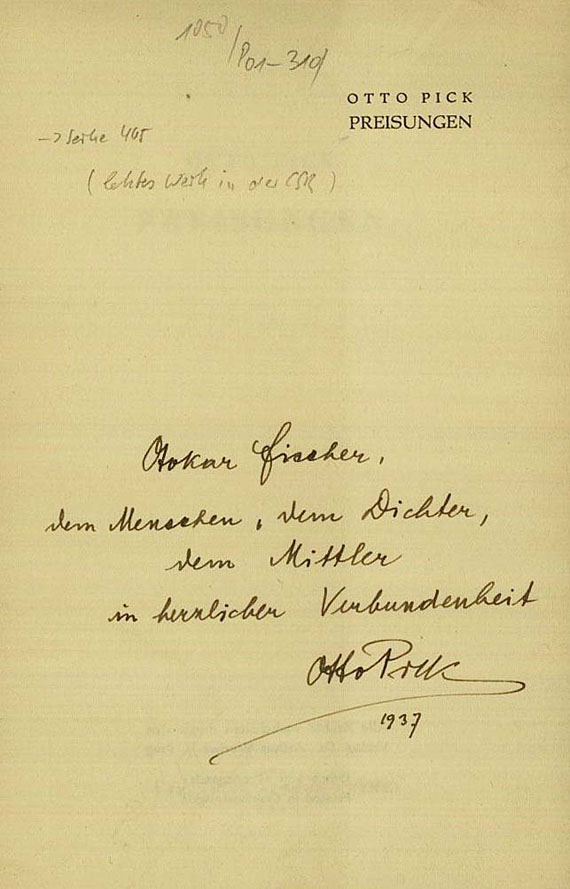 1050/
P01-310
OTTO PICK
PREISUNGEN
-> Seite 465
(letztes Werk in der CSR)
Otokar Fischer,
dem Menschen, dem Dichter,
dem Mittler
in herzlicher Verbundenheit
Otto Pick
1937